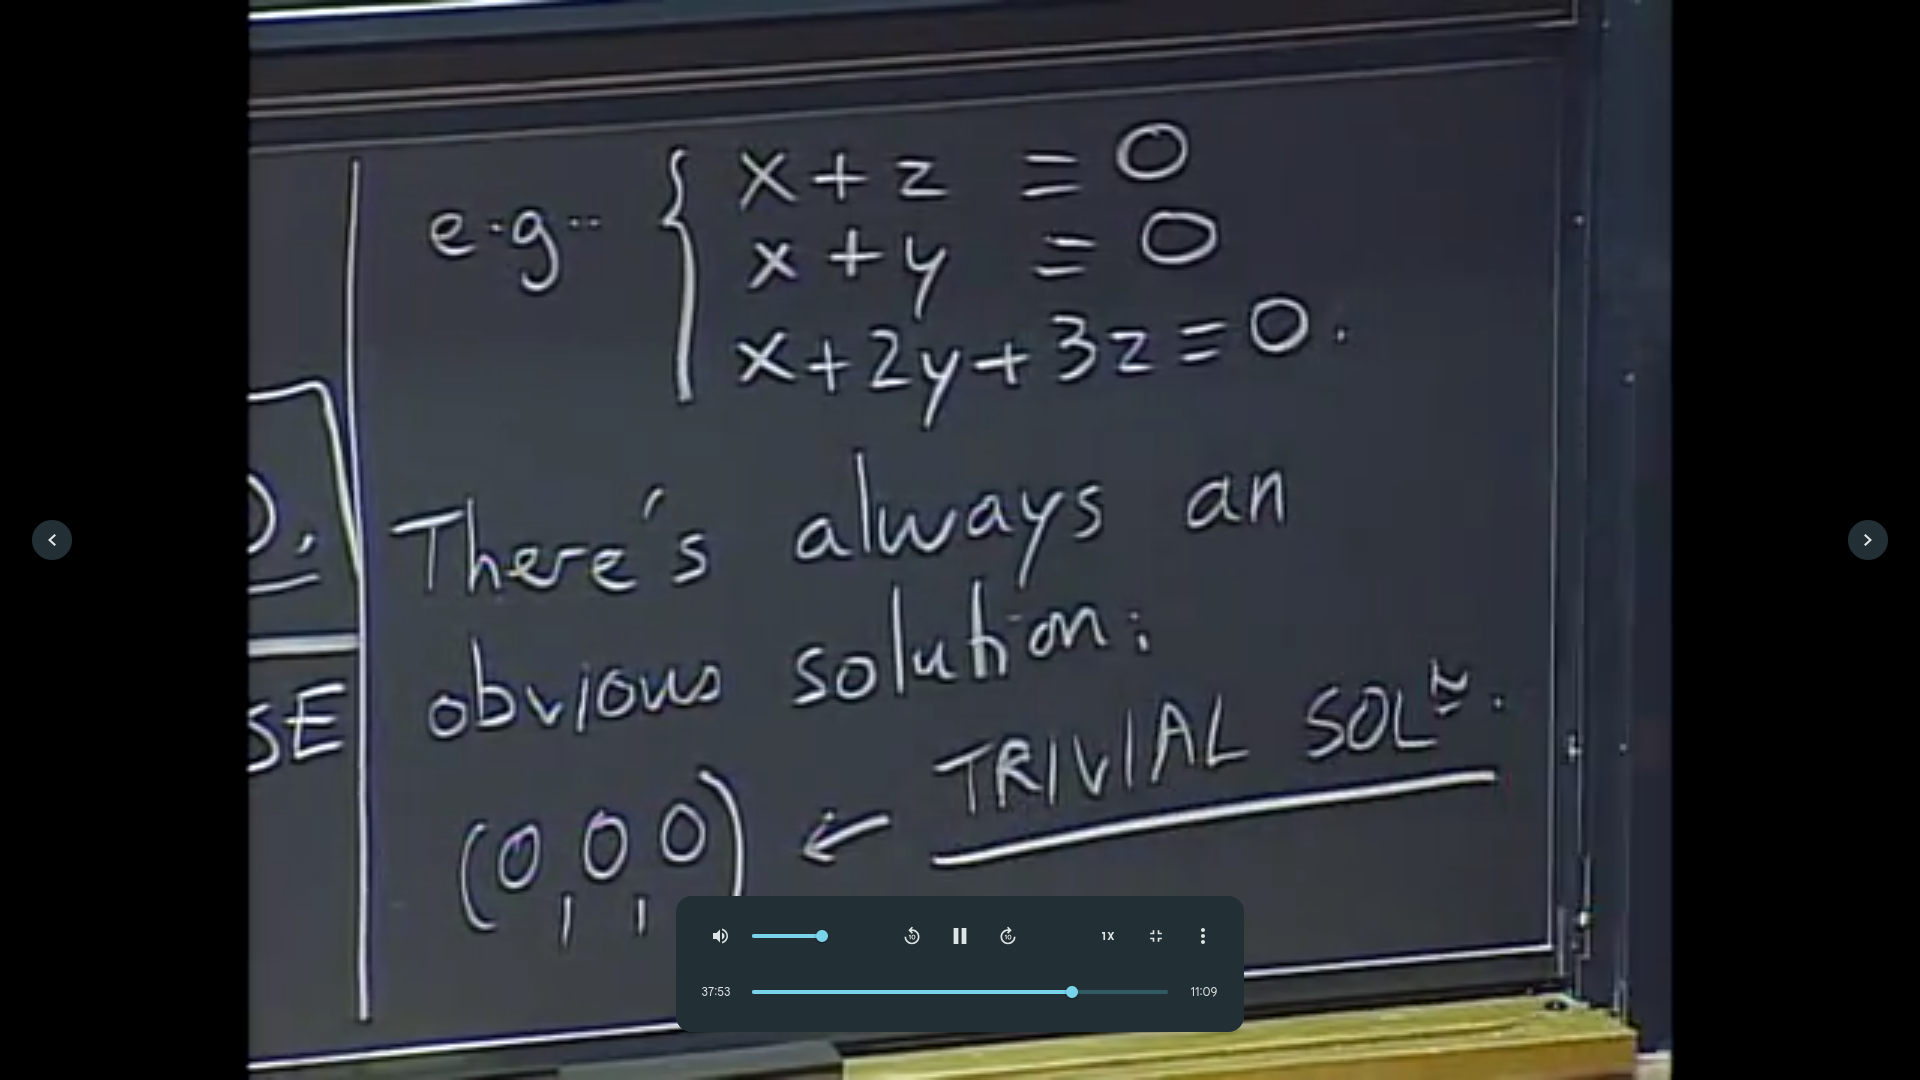 e.g.
x + z = 0
x + y = 0
x + 2y + 3z = 0.
There's always an
obvious solution:
(0,0,0) ← TRIVIAL SOLN.
0.
SE
1X
37:53
11:09